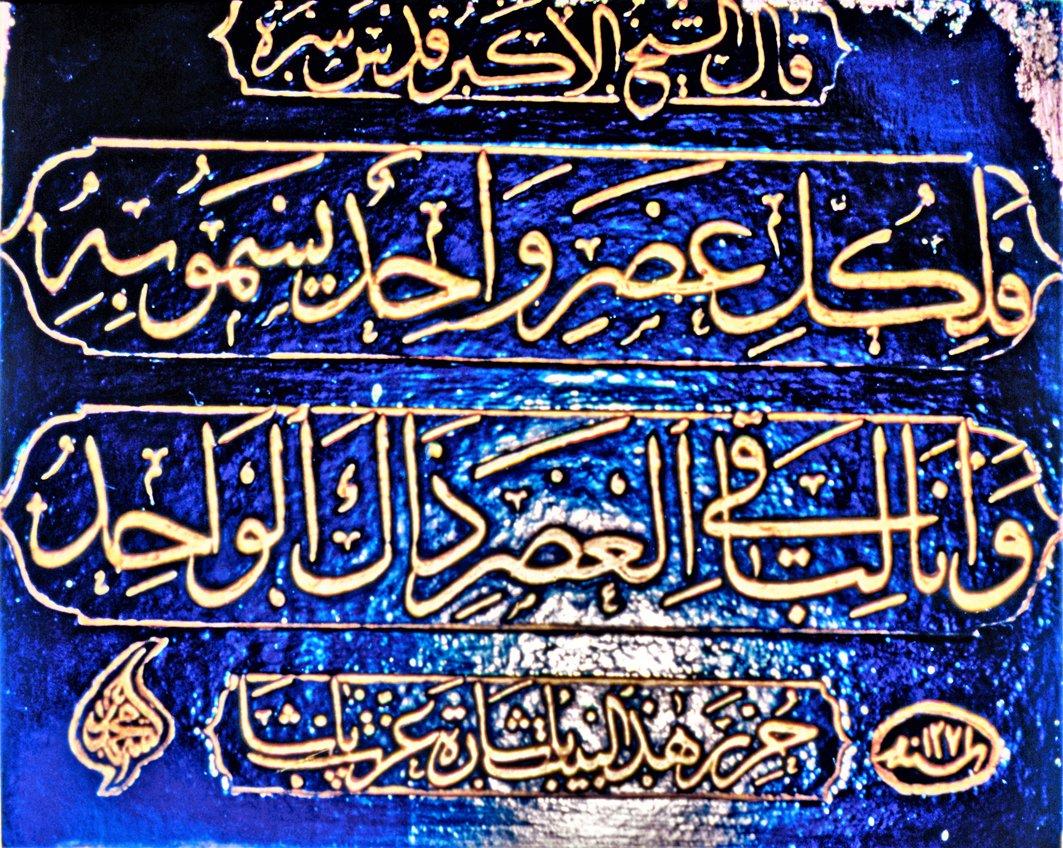 قال الشيخ الاكبر قدس سره
فَلِكُلِّ عَصْرٍ وَاحِدٌ يَسْمُو بِهِ
وَأَنَا لِبَاقِي الْعَصْرِ ذَاكَ الْوَاحِدُ
حرر هذا البيت باشارة عزت پاشا
سنه ١٢٧١